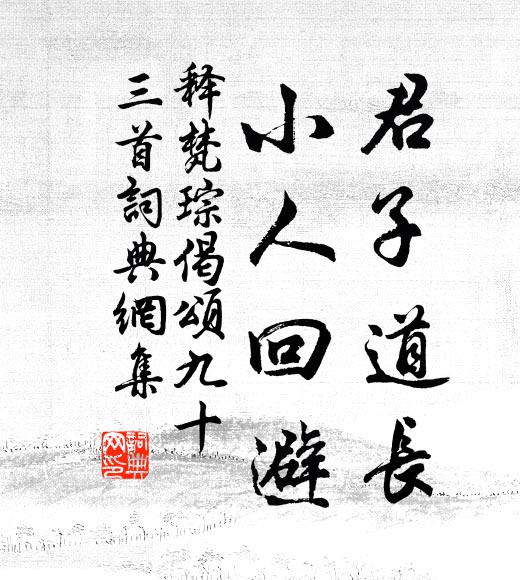 君子道長
小人回避
释梵琮偈頌九十
三首詞典網集
詞典
网印